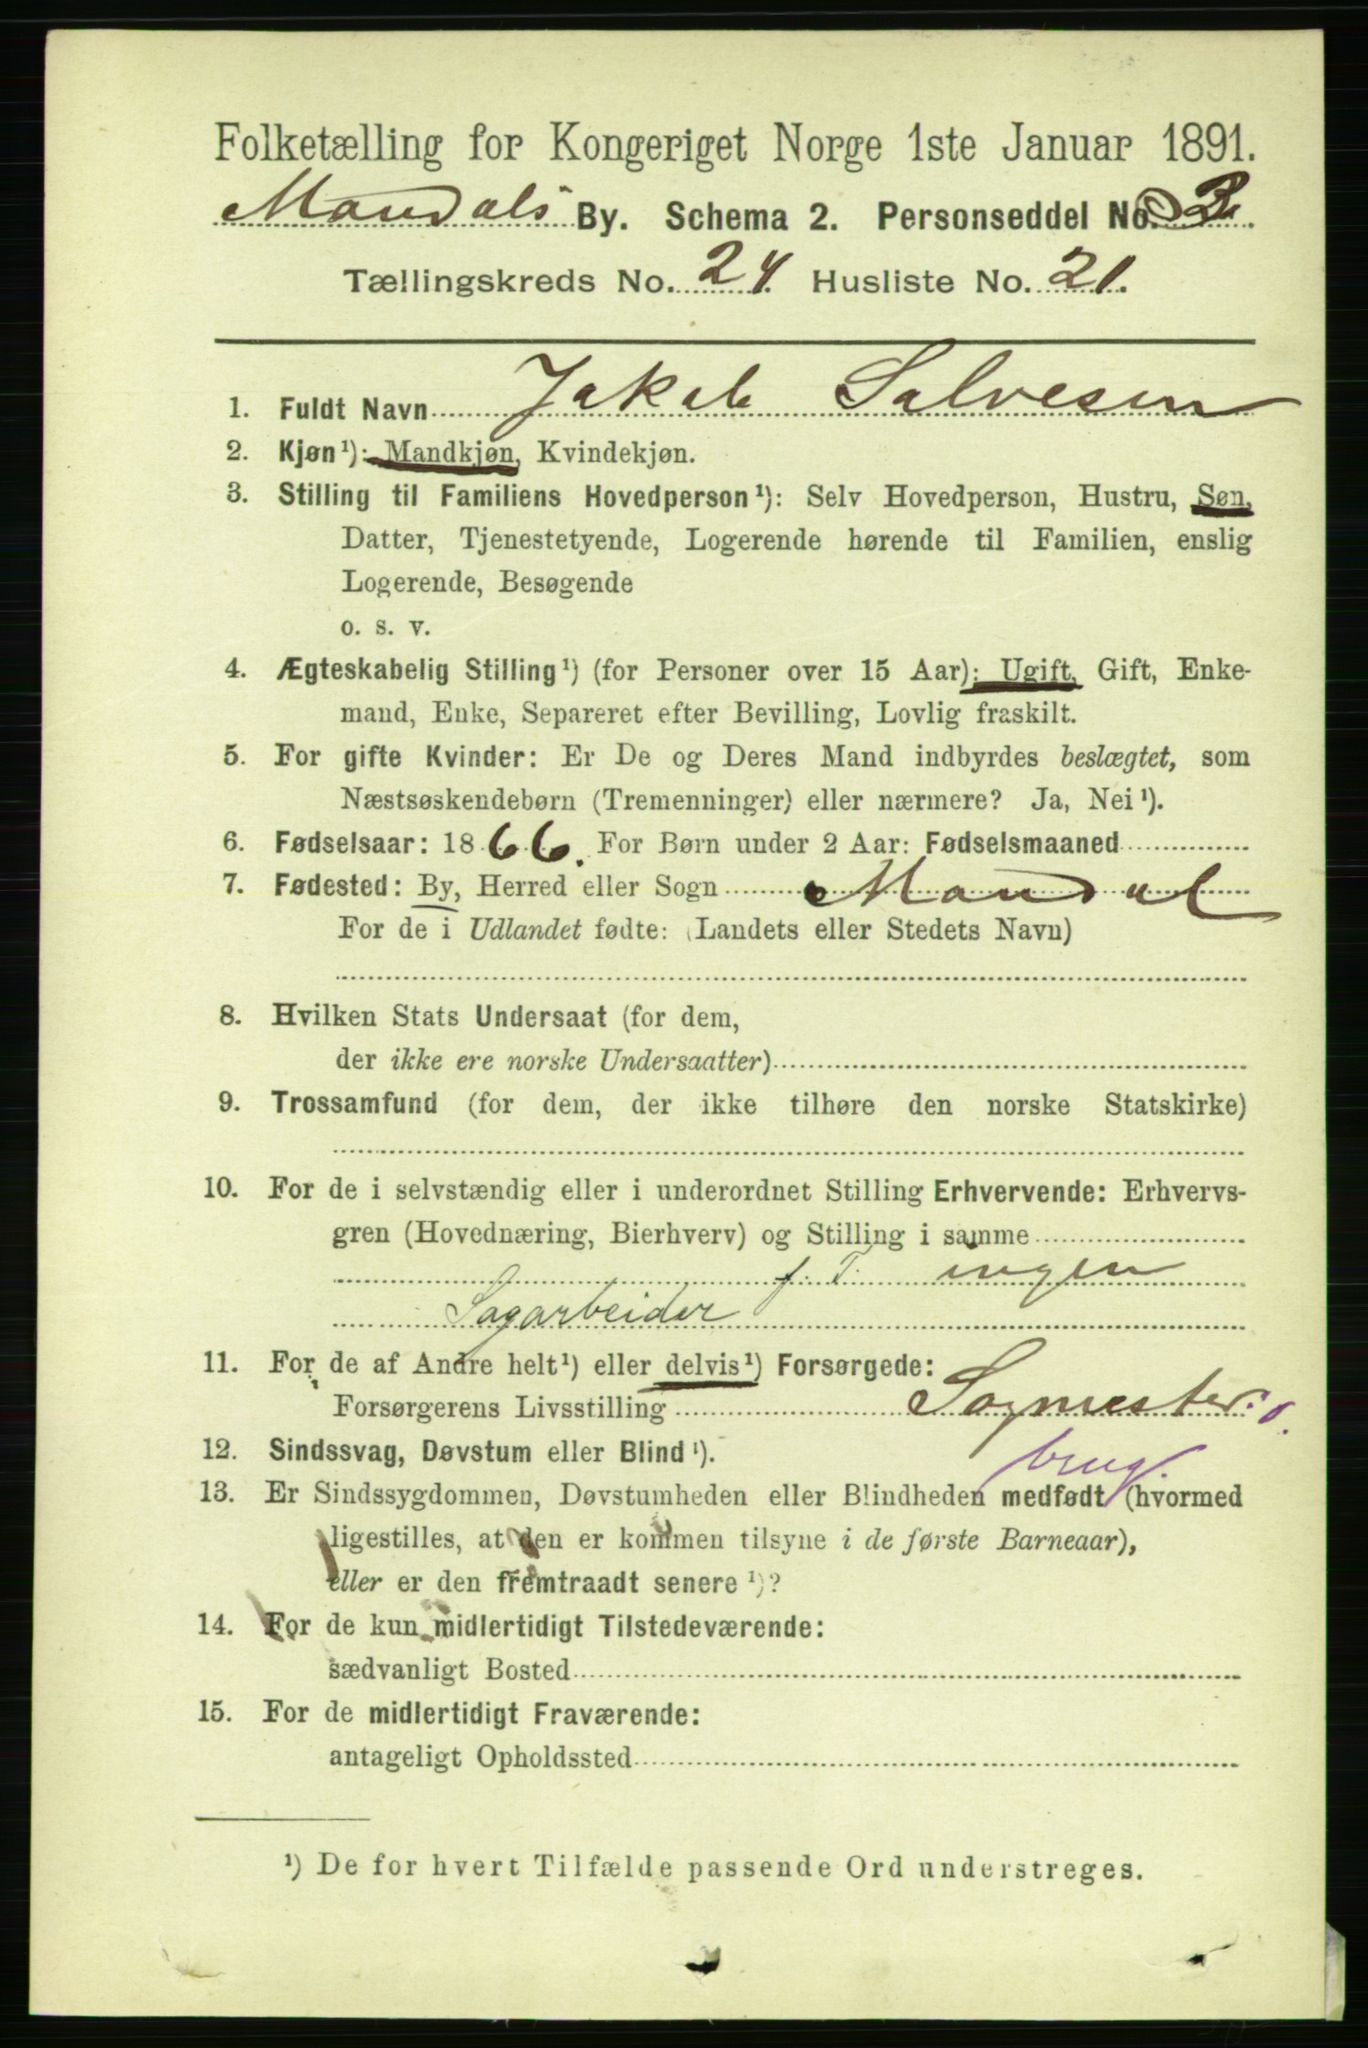 Folketælling for Kongeriget Norge 1ste Januar 1891.
Mandals By. Schema 2. Personseddel No. 3.
Tællingskreds No. 24. Husliste No. 21.
1. Fuldt Navn Jakob Salvesen
2. Kjøn¹): Mandkjøn, Kvindekjøn.
3. Stilling til Familiens Hovedperson¹): Selv Hovedperson, Hustru, Søn,
Datter, Tjenestetyende, Logerende hørende til Familien, enslig
Logerende, Besøgende
o. s. v.
4. Ægteskabelig Stilling¹) (for Personer over 15 Aar): Ugift, Gift, Enke-
mand, Enke, Separeret efter Bevilling, Lovlig fraskilt.
5. For gifte Kvinder: Er De og Deres Mand indbyrdes beslægtet, som
Næstsøskendebørn (Tremenninger) eller nærmere? Ja, Nei¹).
6. Fødselsaar: 1866. For Børn under 2 Aar: Fødselsmaaned
7. Fødested: By, Herred eller Sogn Mandal
For de i Udlandet fødte: (Landets eller Stedets Navn)
8. Hvilken Stats Undersaat (for dem,
der ikke ere norske Undersaatter)
9. Trossamfund (for dem, der ikke tilhøre den norske Statskirke)
10. For de i selvstændig eller i underordnet Stilling Erhvervende: Erhvervs-
gren (Hovednæring, Bierhverv) og Stilling i samme
f. T. ingen
Sagarbeider
11. For de af Andre helt¹) eller delvis¹) Forsørgede:
Forsørgerens Livsstilling Sagmester
brug.
12. Sindssvag, Døvstum eller Blind¹).
13. Er Sindssygdommen, Døvstumheden eller Blindheden medfødt (hvormed
ligestilles, at den er kommen tilsyne i de første Barneaar),
eller er den fremtraadt senere¹)?
14. For de kun midlertidigt Tilstedeværende:
sædvanligt Bosted
15. For de midlertidigt Fraværende:
antageligt Opholdssted
¹) De for hvert Tilfælde passende Ord understreges.